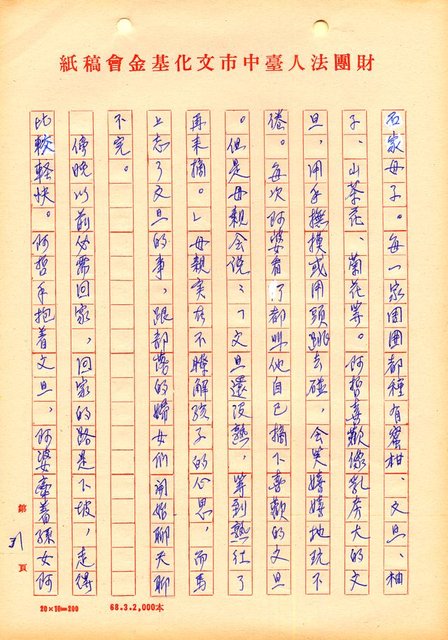 財團法人臺中市文化基金會稿紙
石家母子。每一家園圃都種有蜜柑、文旦、柚
子、山茶花、菊花等。阿哲喜歡像乳房大的文
旦，用手撫摸或用頭跳去碰，會笑嘻嘻地玩不
倦。每次阿婆看了都叫他自己摘下喜歡的文旦
。但是母親會說：「文旦還沒熟，等到熟紅了
再來摘。」母親実在不瞭解孩子的心思，而馬
上忘了文旦的事，跟部落的婦女们開始聊天聊
不完。
傍晚以前必需回家，回家的路是下坡，走得
比較輕快。阿哲手抱着文旦，阿婆牽着孫女阿
第 31 頁
20×10=200
68.3.2,000本